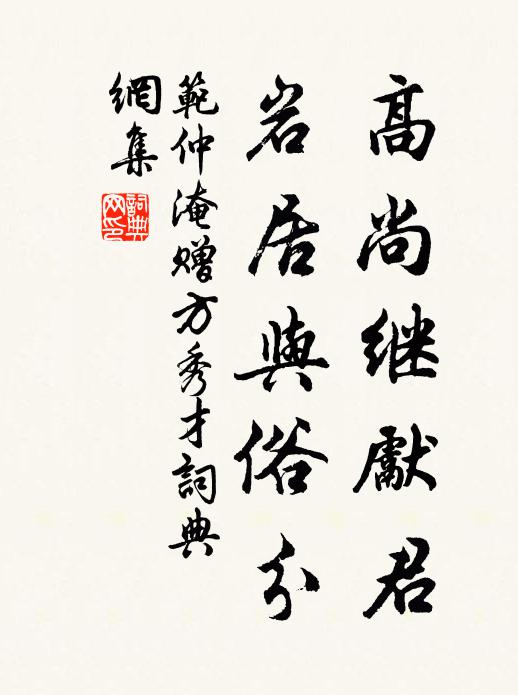 高尚继獻君
岩居與俗分
範仲淹赠方秀才詞典
網集
詞典
网印